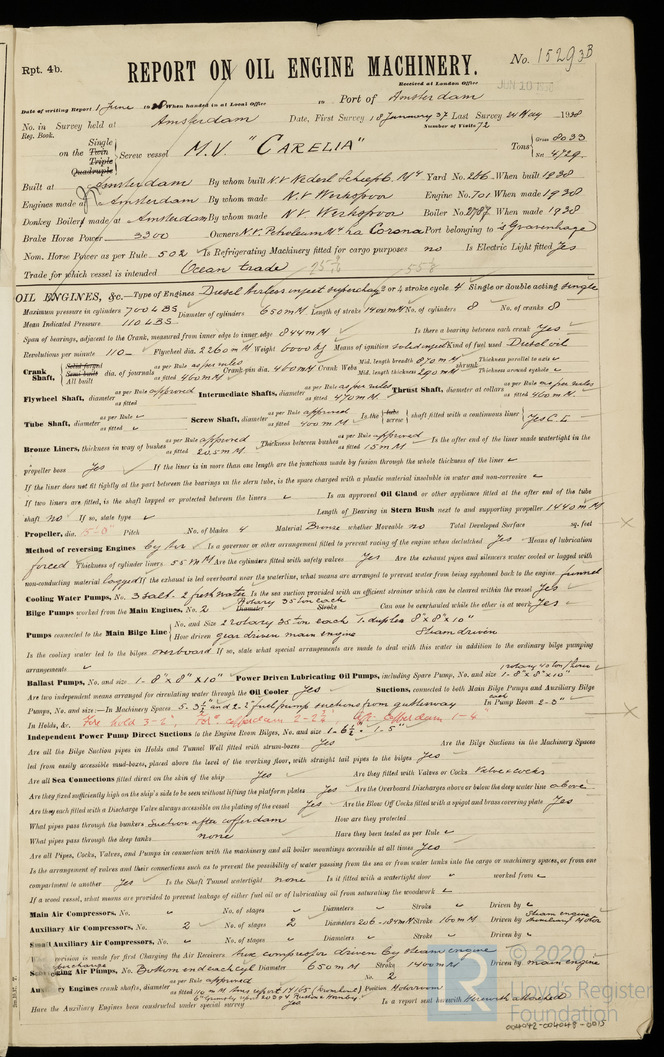 Rpt. 4b.
No. 15293B
REPORT ON OIL ENGINE MACHINERY.
Received at London Office
JUN 10 1938
Date of writing Report 1 June 1938 When handed in at Local Office in Port of Amsterdam
No. in Survey held at Amsterdam Date, First Survey 18 January 37 Last Survey 24 May 1938
Reg. Book. Number of Visits 72
on the Single Twin Triple Quadruple Screw vessel M.V. "CARELIA" Tons Gross 8033 Net 4729
Built at Amsterdam By whom built N.V. Nederl. Scheepb. My Yard No. 266 When built 1938
Engines made at Amsterdam By whom made N.V. Werkspoor Engine No. 701 When made 1938
Donkey Boilers made at Amsterdam By whom made N.V. Werkspoor Boiler No. 2787 When made 1938
Brake Horse Power 3300 Owners N.V. Petroleum My na Corona Port belonging to 's Gravenhage
Nom. Horse Power as per Rule 502 Is Refrigerating Machinery fitted for cargo purposes no Is Electric Light fitted Yes
Trade for which vessel is intended Ocean trade
OIL ENGINES, &c.—Type of Engines Diesel Airless inject supercharg 2 or 4 stroke cycle 4 Single or double acting single
Maximum pressure in cylinders 700 LBS Diameter of cylinders 650 mM Length of stroke 1400 mM No. of cylinders 8 No. of cranks 8
Mean Indicated Pressure 110 LBS
Span of bearings, adjacent to the Crank, measured from inner edge to inner edge 844 mM Is there a bearing between each crank Yes
Revolutions per minute 110 Flywheel dia. 2260 mM Weight 6000 Kg Means of ignition solid inject Kind of fuel used Diesel oil
Crank Shaft, Solid forged Semi built All built dia. of journals as per Rule as per rules as fitted 460 mM Crank pin dia. 460 mM Crank Webs Mid. length breadth 870 mM Mid. length thickness 290 mM shrunk Thickness parallel to axis Thickness around eyehole
Flywheel Shaft, diameter as per Rule approved as fitted Intermediate Shafts, diameter as per Rule as per rules as fitted 470 mM Thrust Shaft, diameter at collars as per Rule as per rules as fitted 460 mM
Tube Shaft, diameter as per Rule as fitted Screw Shaft, diameter as per Rule approved as fitted 400 mM Is the tube screw shaft fitted with a continuous liner Yes C.L.
Bronze Liners, thickness in way of bushes as per Rule approved as fitted 20.5 mM Thickness between bushes as per Rule approved as fitted 15 mM Is the after end of the liner made watertight in the
propeller boss Yes If the liner is in more than one length are the junctions made by fusion through the whole thickness of the liner
If the liner does not fit tightly at the part between the bearings on the stern tube, is the space charged with a plastic material insoluble in water and non-corrosive
If two liners are fitted, is the shaft lapped or protected between the liners Is an approved Oil Gland or other appliance fitted at the after end of the tube
shaft no If so, state type Length of Bearing in Stern Bush next to and supporting propeller 1440 mM
Propeller, dia. Pitch No. of blades 4 Material Bronze whether Moveable no Total Developed Surface sq. feet
Method of reversing Engines by air Is a governor or other arrangement fitted to prevent racing of the engine when declutched Yes Means of lubrication
forced Thickness of cylinder liners 55 mM Are the cylinders fitted with safety valves Yes Are the exhaust pipes and silencers water cooled or lagged with
non-conducting material lagged If the exhaust is led overboard near the waterline, what means are arranged to prevent water from being syphoned back to the engine funnel
Cooling Water Pumps, No. 3 salt. 2 fresh water Is the sea suction provided with an efficient strainer which can be cleared within the vessel Yes
Bilge Pumps worked from the Main Engines, No. 2 Diameter Rotary 35 ton each Stroke Can one be overhauled while the other is at work Yes
Pumps connected to the Main Bilge Line No. and Size 2 rotary 35 ton each 1 duplex 8"x8"x10" How driven gear driven main engine Steam driven
Is the cooling water led to the bilges overboard If so, state what special arrangements are made to deal with this water in addition to the ordinary bilge pumping
arrangements
Ballast Pumps, No. and size 1-8"x8"x10" Power Driven Lubricating Oil Pumps, including Spare Pump, No. and size 1 rotary 40 ton/hour 1-8"x8"x10"
Are two independent means arranged for circulating water through the Oil Cooler Yes Suctions, connected to both Main Bilge Pumps and Auxiliary Bilge
Pumps, No. and size:—In Machinery Spaces 5-3½" and 2-2" fuel pump suctions from gutterway In Pump Room 2-3"
In Holds, &c. Fore hold 3-2", For'd cofferdam 2-2½" Aft. cofferdam 1-4"
Independent Power Pump Direct Suctions to the Engine Room Bilges, No. and size 1-6½", 1-5"
Are all the Bilge Suction pipes in Holds and Tunnel Well fitted with strum-boxes Yes Are the Bilge Suctions in the Machinery Spaces
led from easily accessible mud-boxes, placed above the level of the working floor, with straight tail pipes to the bilges Yes
Are all Sea Connections fitted direct on the skin of the ship Yes Are they fitted with Valves or Cocks Valve & cocks
Are they fixed sufficiently high on the ship's side to be seen without lifting the platform plates Yes Are the Overboard Discharges above or below the deep water line above
Are they each fitted with a Discharge Valve always accessible on the plating of the vessel Yes Are the Blow Off Cocks fitted with a spigot and brass covering plate Yes
What pipes pass through the bunkers Suction after cofferdam How are they protected
What pipes pass through the deep tanks none Have they been tested as per Rule
Are all Pipes, Cocks, Valves, and Pumps in connection with the machinery and all boiler mountings accessible at all times Yes
Is the arrangement of valves and their connections such as to prevent the possibility of water passing from the sea or from water tanks into the cargo or machinery spaces, or from one
compartment to another Yes Is the Shaft Tunnel watertight none Is it fitted with a watertight door worked from
If a wood vessel, what means are provided to prevent leakage of either fuel oil or of lubricating oil from saturating the woodwork
Main Air Compressors, No. No. of stages Diameters Stroke Driven by
Auxiliary Air Compressors, No. 2 No. of stages 2 Diameters 206-184 mM Stroke 160 mM Driven by Steam engine Auxiliary Motor
Small Auxiliary Air Compressors, No. No. of stages Diameters Stroke Driven by
What provision is made for first Charging the Air Receivers Aux compressor driven by steam engine
Scavenging Air Pumps, No. Bottom end each cyl Diameter 650 mM Stroke 1400 mM Driven by main engine
Auxiliary Engines crank shafts, diameter as per Rule approved as fitted 110 mM No. 2 Position Motorroom
Have the Auxiliary Engines been constructed under special survey Yes Is a report sent herewith Herewith attached
© 2020
LR
Lloyd's Register
Foundation
004042-004048-0015